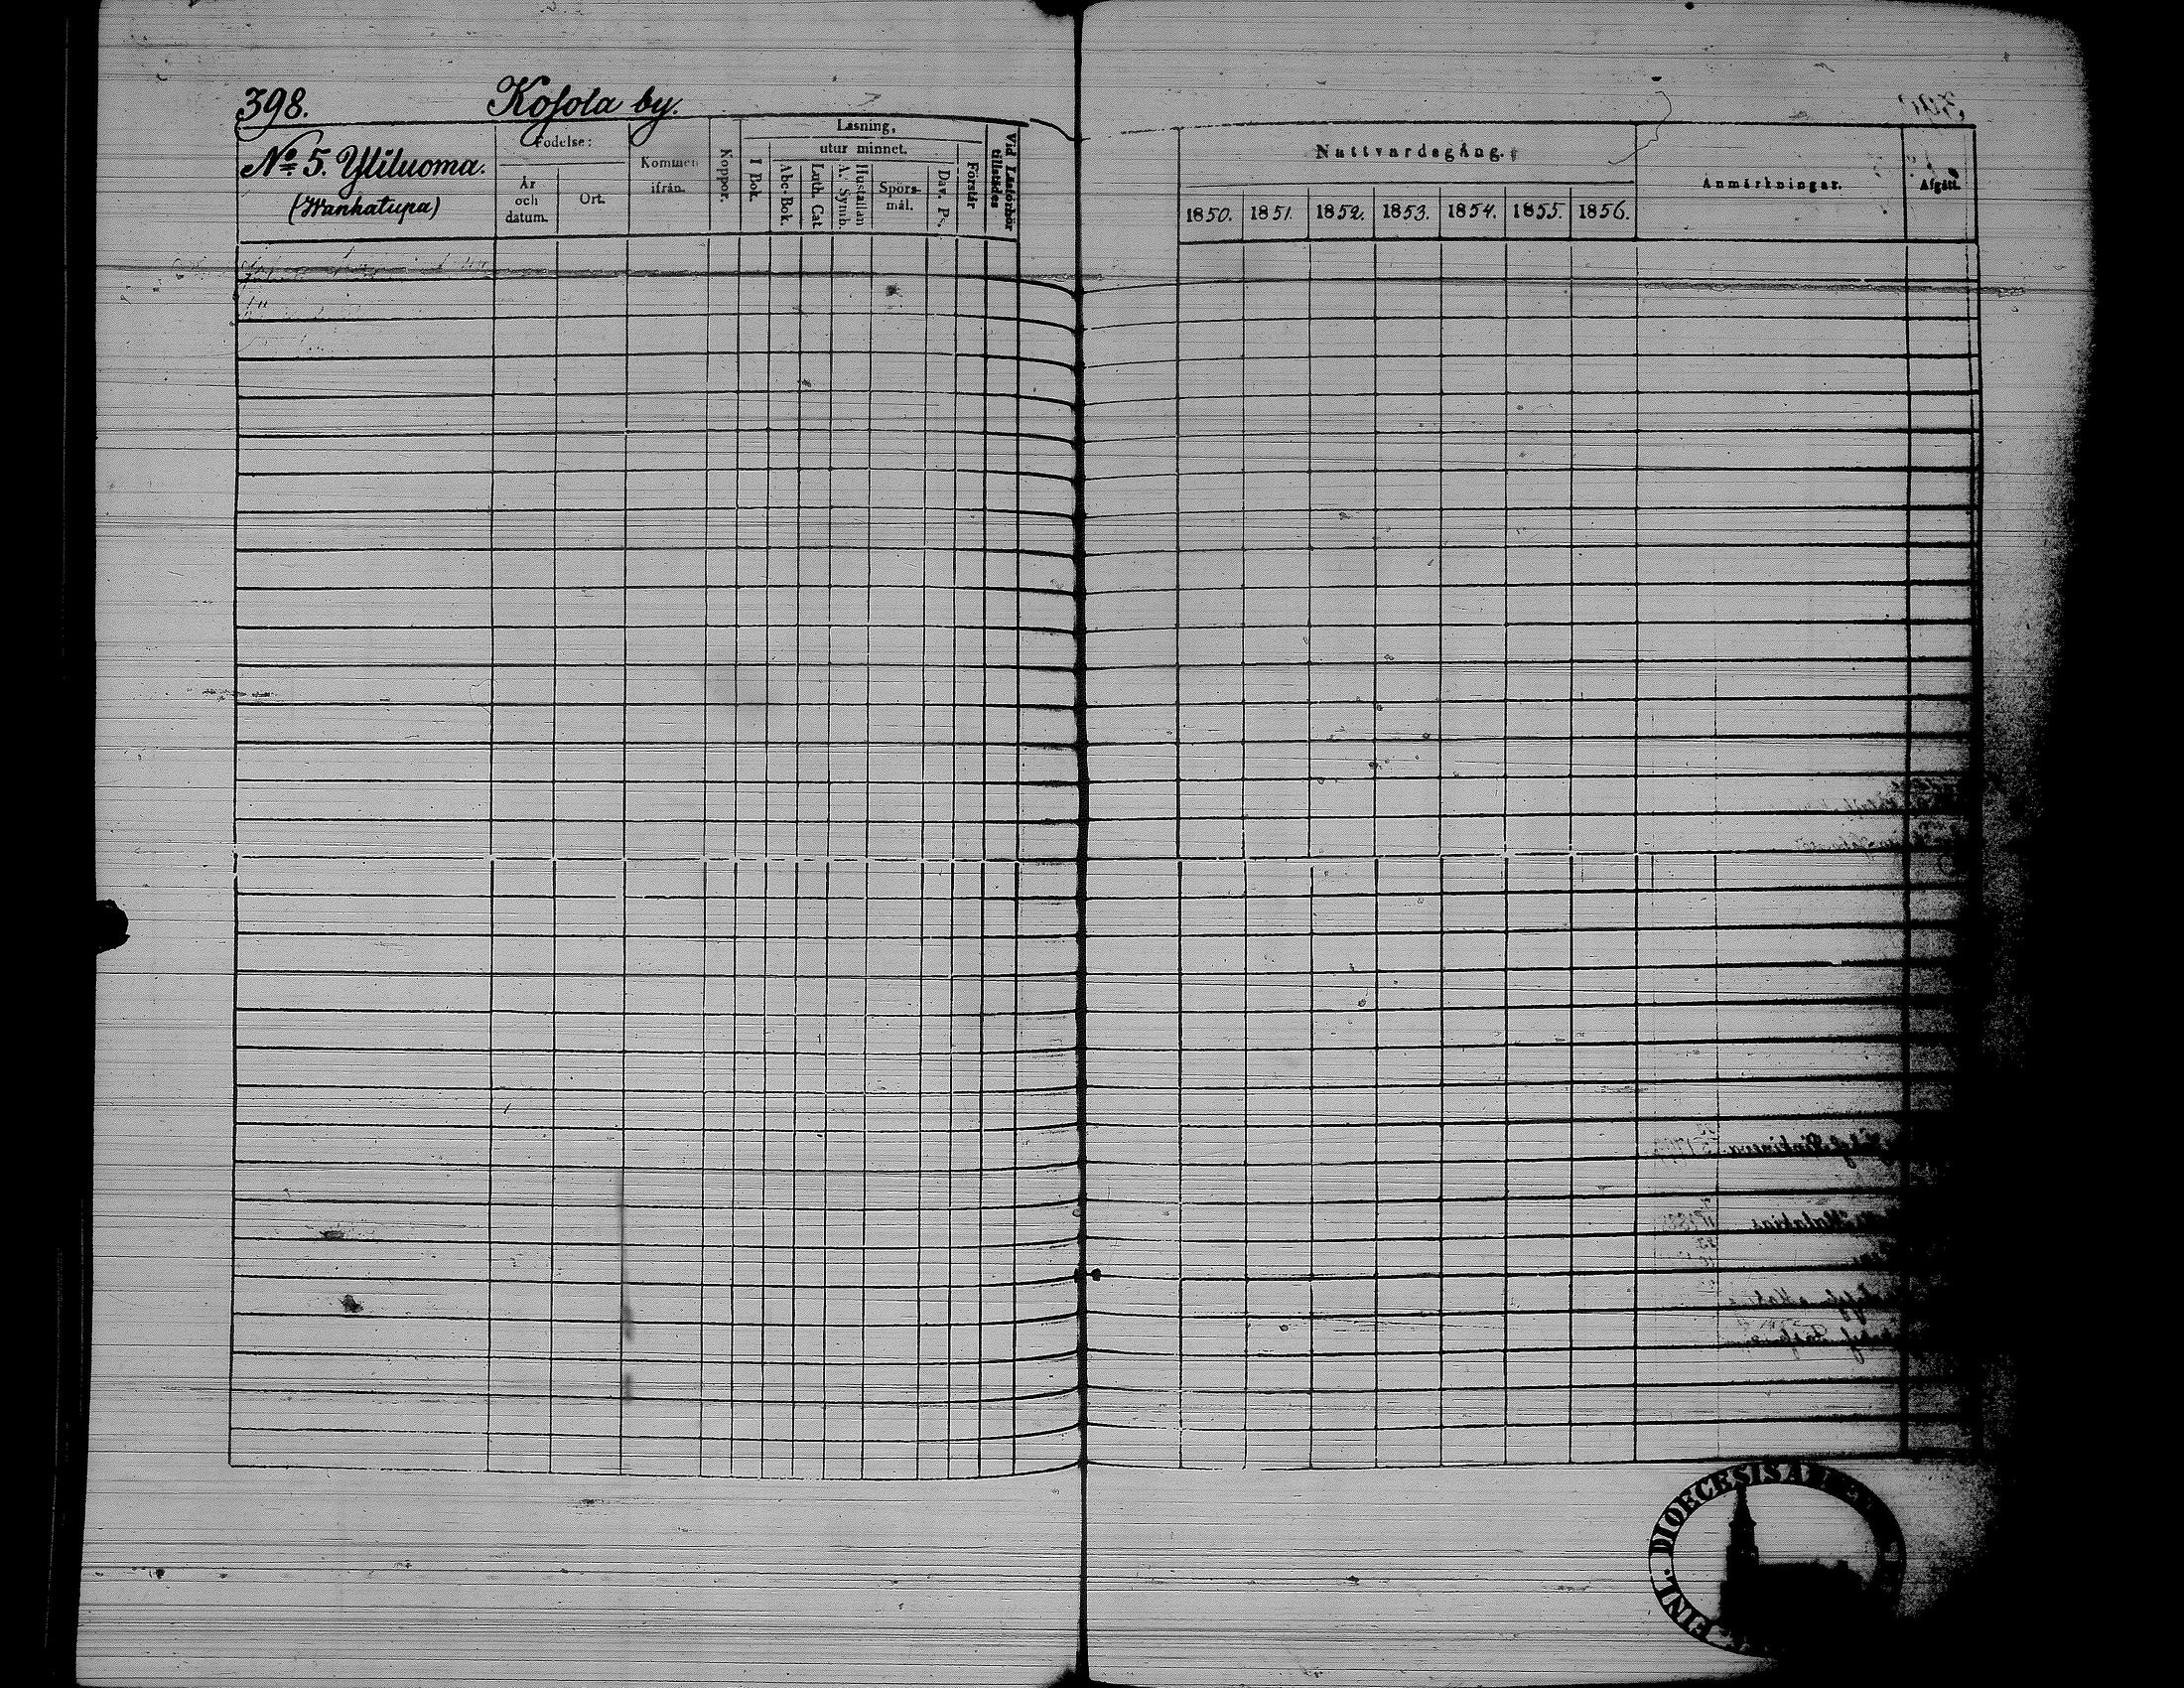 398. Kosola by.
No 5. Yliluoma.
(Wanhatupa)
Födelse:
År och datum.
Ort.
Kommen ifrån.
Koppor.
Läsning,
utur minnet.
I Bok.
Abc-Bok.
Luth. Cat.
A. Symb. Hustaflan
Spörs-mål.
Dav. Ps.
Förstår
Vid Läsförhör tillstädes
Nattvardsgång.
1850. 1851. 1852. 1853. 1854. 1855. 1856.
Anmärkningar.
Afgått.
FINL. DIOECESIS